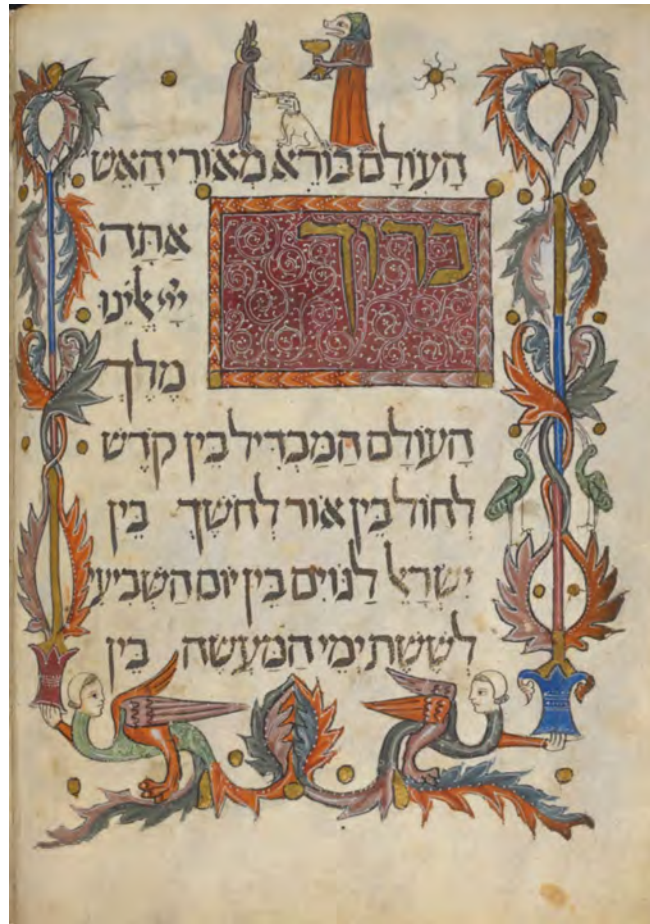 הָעוֹלָם בּוֹרֵא מְאוֹרֵי הָאֵשׁ
בָּרוּךְ אַתָּה
יְיָ אֱלֹהֵינוּ
מֶלֶךְ
הָעוֹלָם הַמַּבְדִּיל בֵּין קֹדֶשׁ
לְחוֹל בֵּין אוֹר לְחֹשֶׁךְ בֵּין
יִשְׂרָאֵל לַגּוֹיִם בֵּין יוֹם הַשְּׁבִיעִי
לְשֵׁשֶׁת יְמֵי הַמַּעֲשֶׂה בֵּין